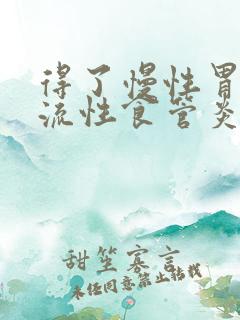 得了慢性胃
流性食管炎
甜笙寡言
未经同意禁止转载